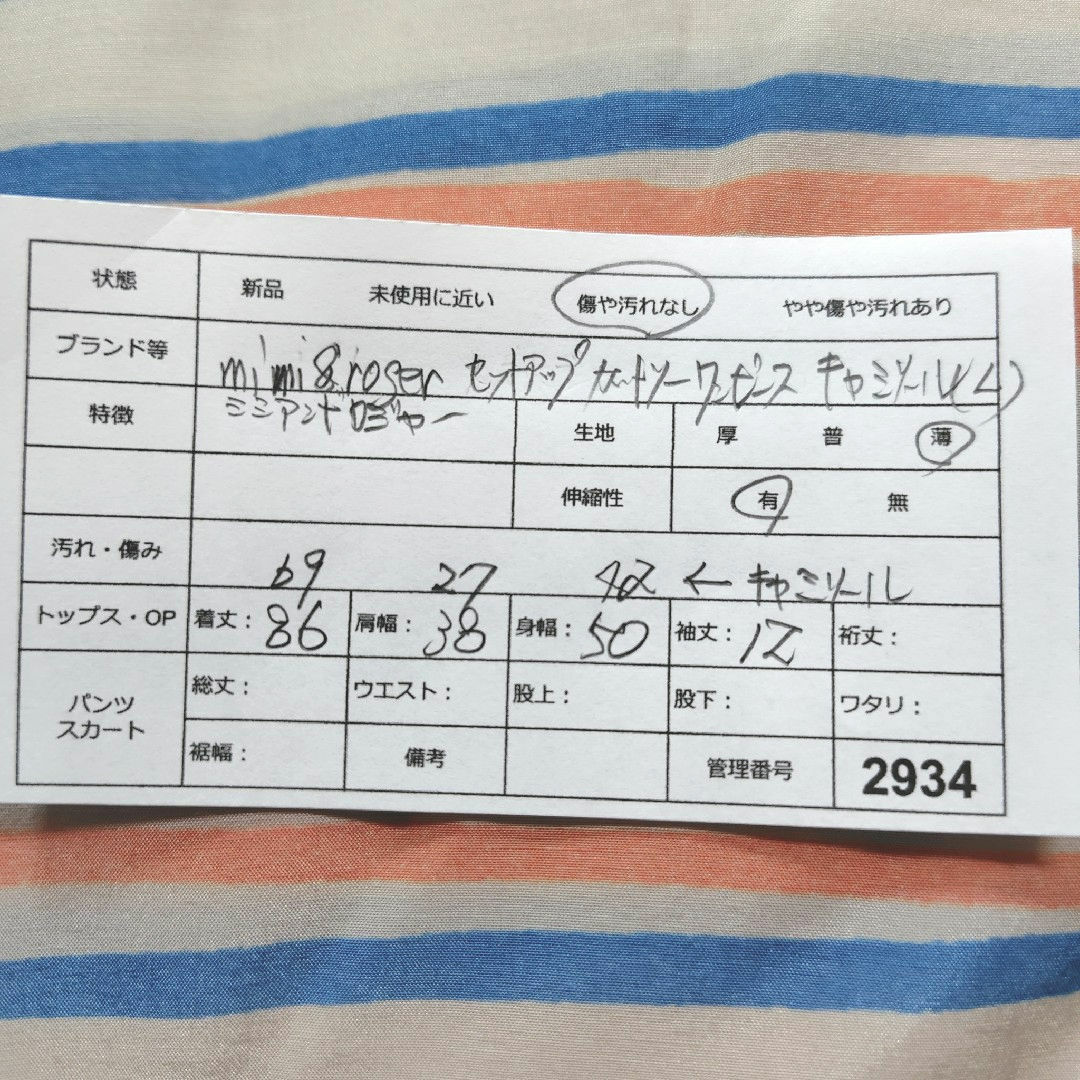 状態 新品 未使用に近い 傷や汚れなし やや傷や汚れあり
ブランド等 mimi&roger セットアップ カットソーワンピース キャミソール(L)
特徴 ミミアンドロジャー 生地 厚 普 薄
伸縮性 有 無
汚れ・傷み 69 27 42 ← キャミソール
トップス・OP 着丈: 86 肩幅: 38 身幅: 50 袖丈: 12 裄丈:
パンツ スカート 総丈: ウエスト: 股上: 股下: ワタリ:
裾幅: 備考 管理番号 2934